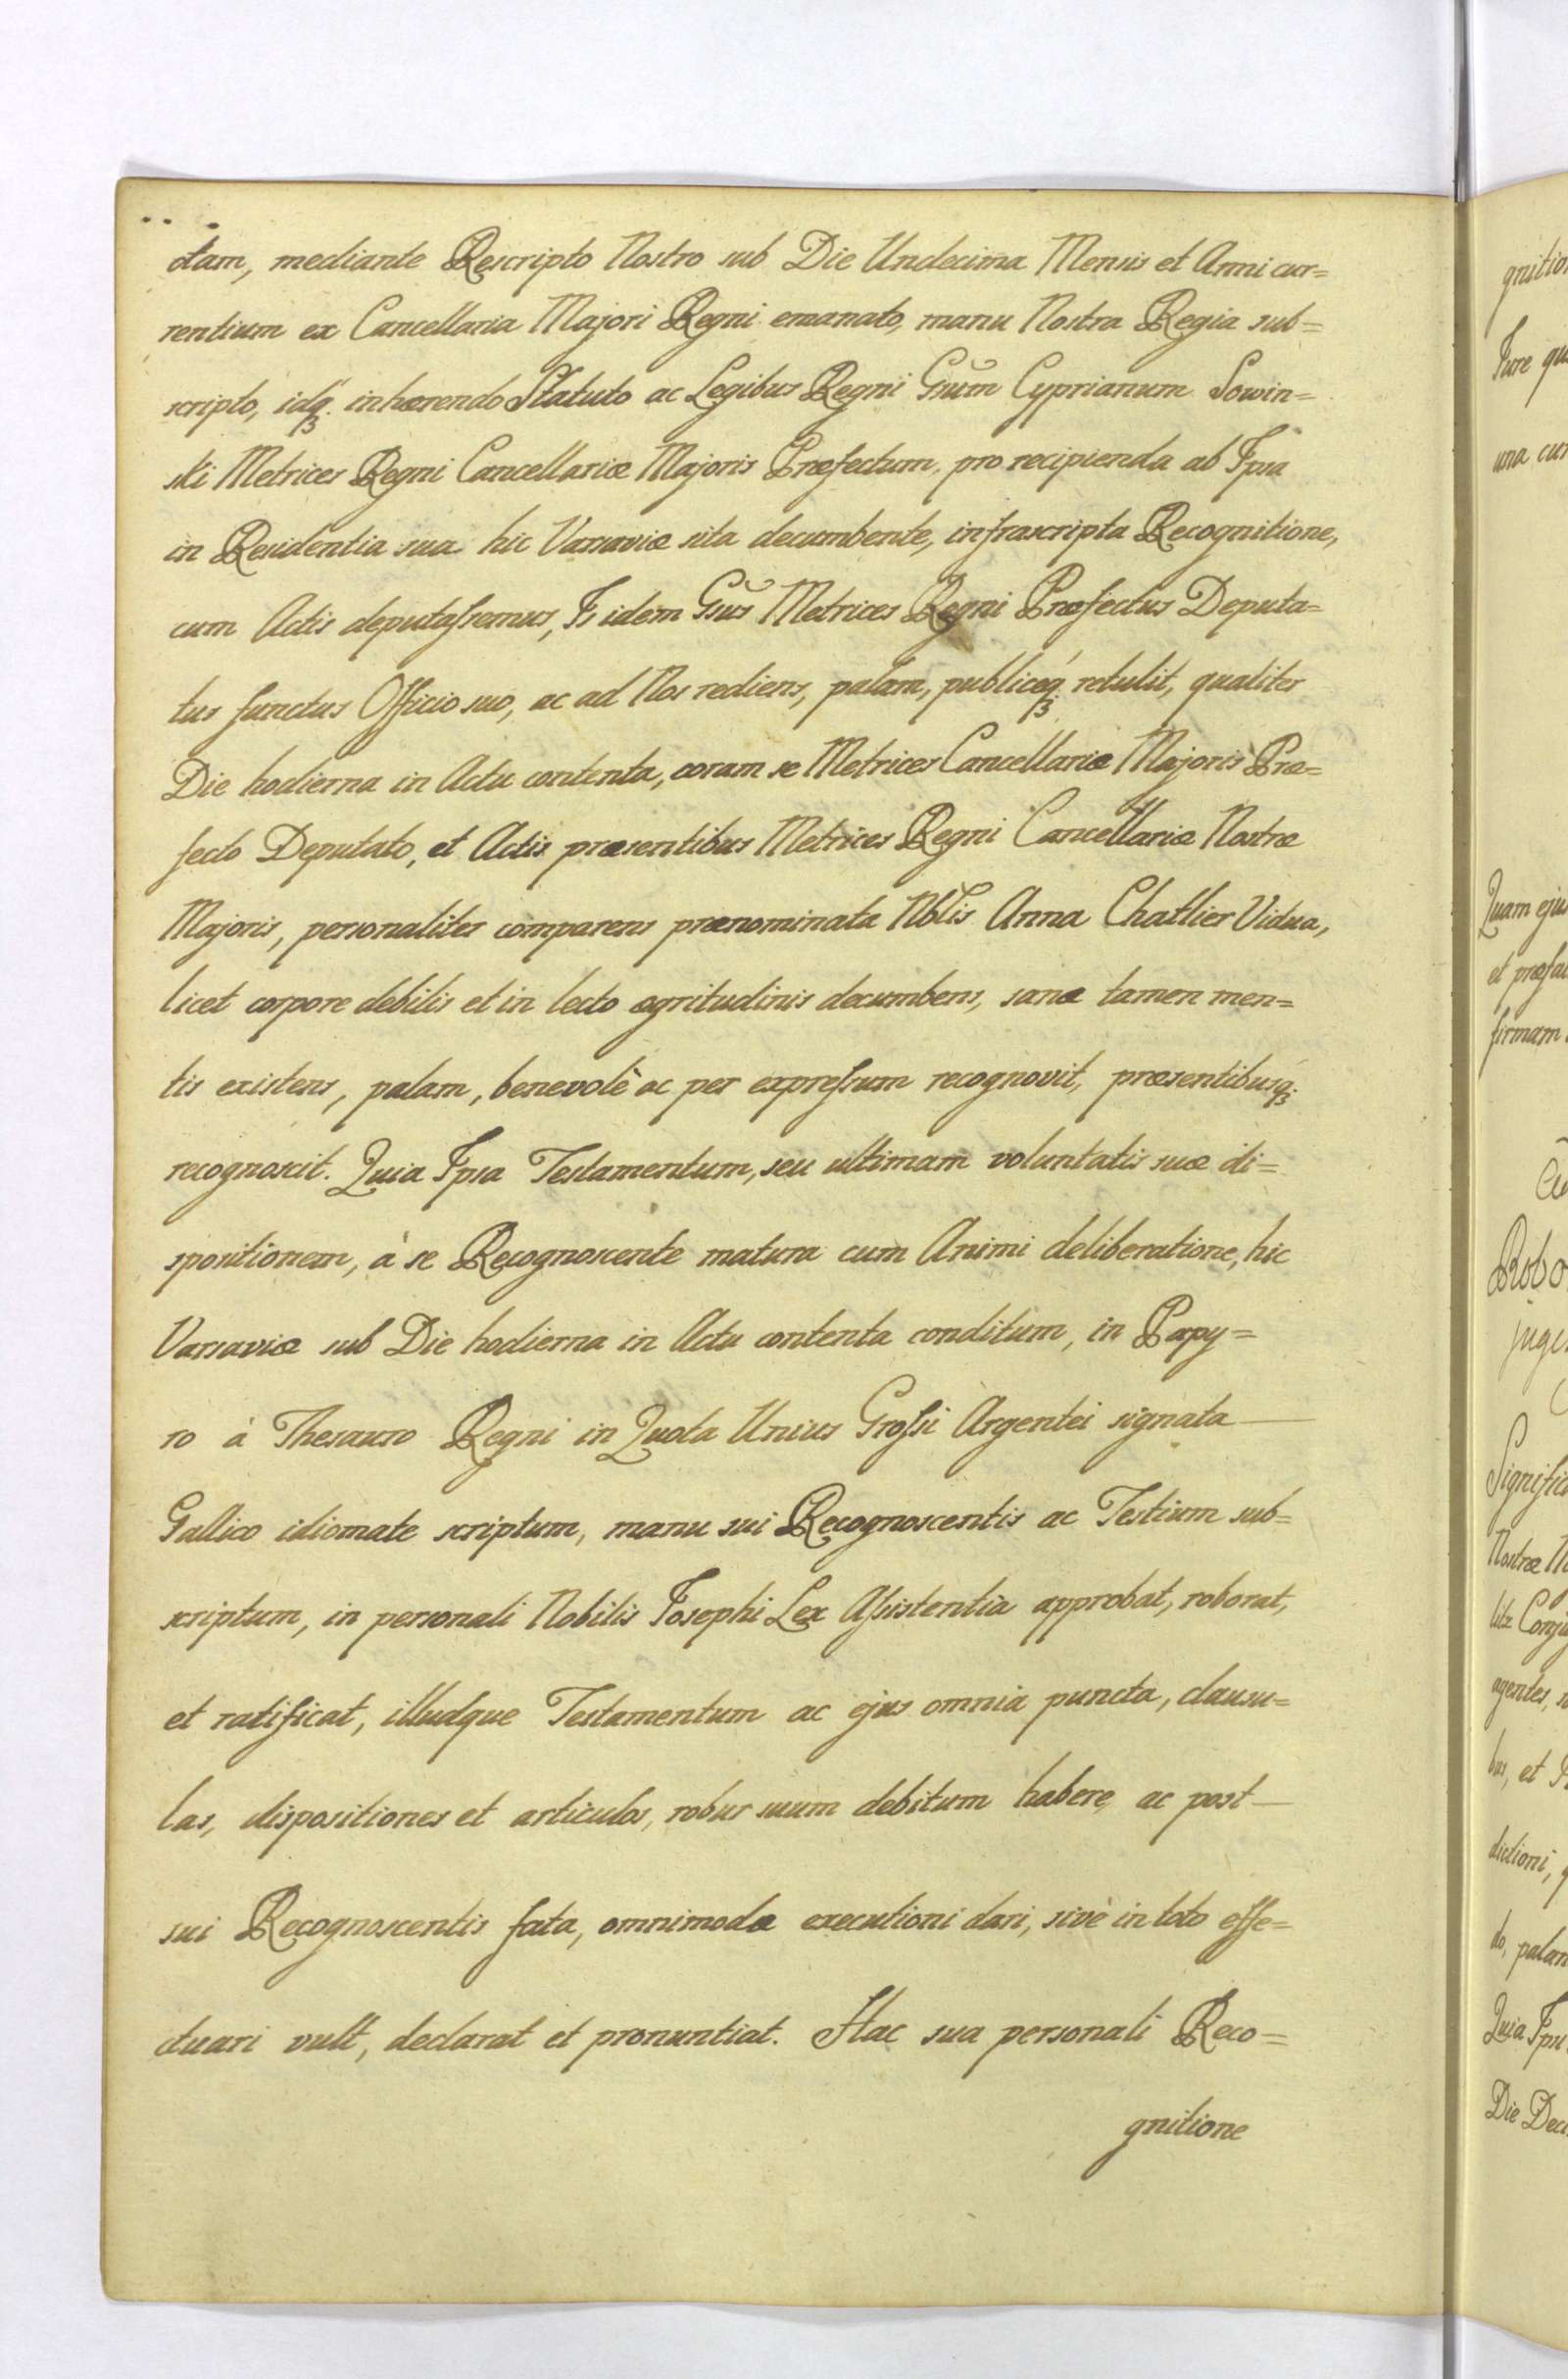 ctam, mediante Rescripto Nostro sub Die Undecima Mensis et Anni cur=
rentium ex Cancellaria Majori Regni emanato, manu Nostra Regia sub=
scripto, idq3 inhærendo Statuto ac Legibus Regni Gsum Cyprianum Sowin=
ski Metrices Regni Cancellariæ Majoris Præfectum, pro recipienda ab Ipsa
in Residentia sua hic Varsaviæ sita decumbente, infrascripta Recognitione,
cum Actis deputassemus, Is idem Gsus Metrices Regni Præfectus Deputa=
tus functus Officio suo, ac ad Nos rediens, palam, publiceq3 retulit, qualiter
Die hodierna in Actu contenta, coram se Metrices Cancellariæ Majoris Præ=
fecto Deputato, et Actis præsentibus Metrices Regni Cancellariæ Nostræ
Majoris, personaliter comparens prænominata Nblis Anna Chatlier Vidua,
licet corpore debilis et in lecto ægritudinis decumbens, sanæ tamen men=
tis existens, palam, benevolè ac per expressum recognovit, præsentibusq3
recognoscit. Quia Ipsa Testamentum, seu ultimam voluntatis suæ di=
spositionem, à se Recognoscente matura cum Animi deliberatione, hic
Varsaviæ sub Die hodierna in Actu contenta conditum, in Papy=
ro à Thesauro Regni in Quota Unius Grossi Argentei signata —
Gallico idiomate scriptum, manu sui Recognoscentis ac Testium sub=
scriptum, in personali Nobilis Josephi Lex Assistentia approbat, roborat,
et ratificat, illudque Testamentum ac ejus omnia puncta, clausu=
las, dispositiones et articulos, robur suum debitum habere, ac post —
sui Recognoscentis fata, omnimodæ executioni dari, sivè in toto effe=
ctuari vult, declarat et pronuntiat. Hac sua personali Reco=
gnitione